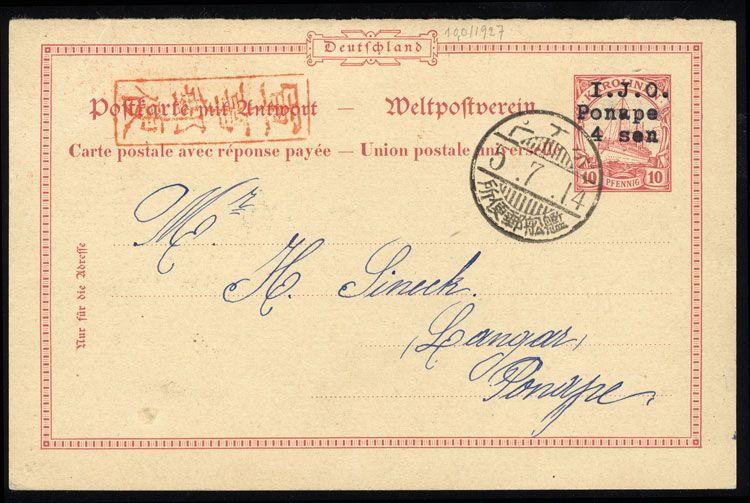 Deutschland
190/1927
Postkarte mit Antwort — Weltpostverein
Carte postale avec réponse payée — Union postale universelle
KAROLINEN
I.J.O.
Ponape
4 sen
10 PFENNIG 10
5.7.14
艦船郵便所
Nur für die Adresse
Mr
H. Sineck.
Langar,
Ponape,